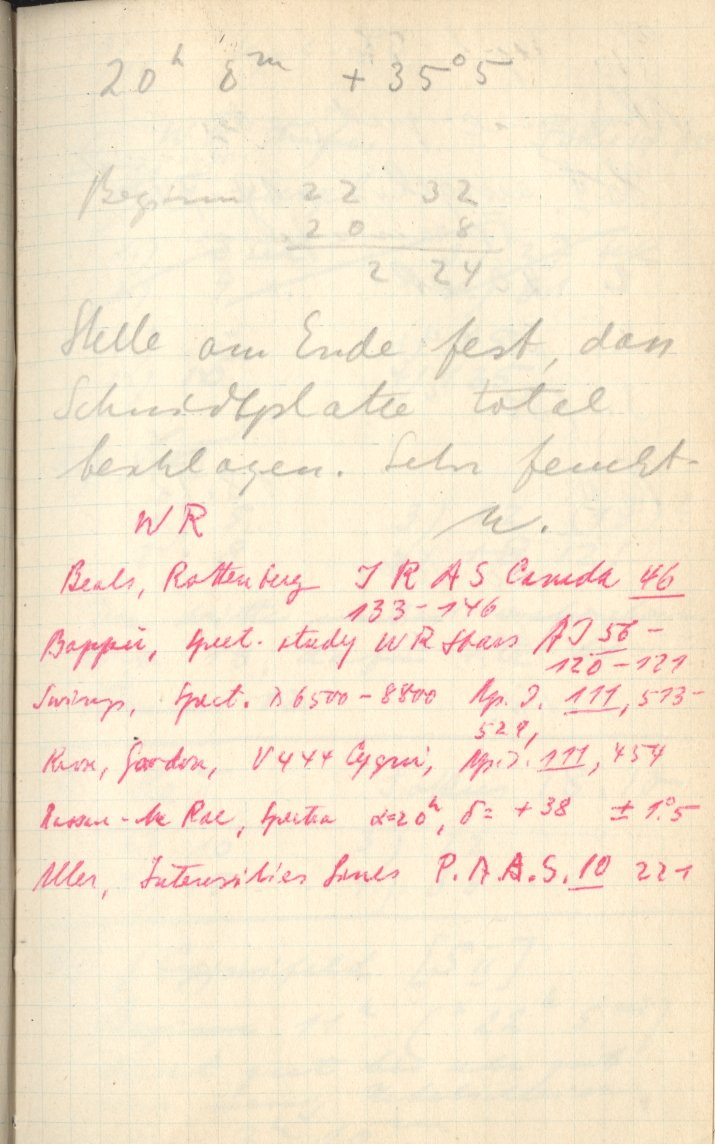 20ʰ 8ᵐ + 35°5
Beginn 22 32
20 8
2 24
Stelle am Ende fest, dass
Schmidtplatte total
beschlagen. Sehr feucht.
W.
WR
Beals, Rottenberg J R A S Canada 46
133-146
Bappu, Spect. study WR Stars AJ 56-
120-121
Swings, Spect. λ 6500-8800 Ap. J. 111, 513-
529,
Kron, Gordon, V444 Cygni, Ap. J. 111, 454
Mc Rae, Spectra α=20ʰ, δ= +38 ± 1°5
Aller, Intensities Lines P. A. A. S. 10 221